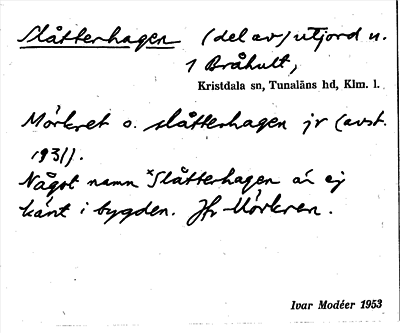 Slåtterhagen (del av) utjord u.
1 Bråhult,
Kristdala sn, Tunaläns hd, Klm. l.
Mörkret o. slåtterhagen jr (avst.
1931).
Något namn *Slåtterhagen är ej
känt i bygden. Jfr Mörkren.
Ivar Modéer 1953